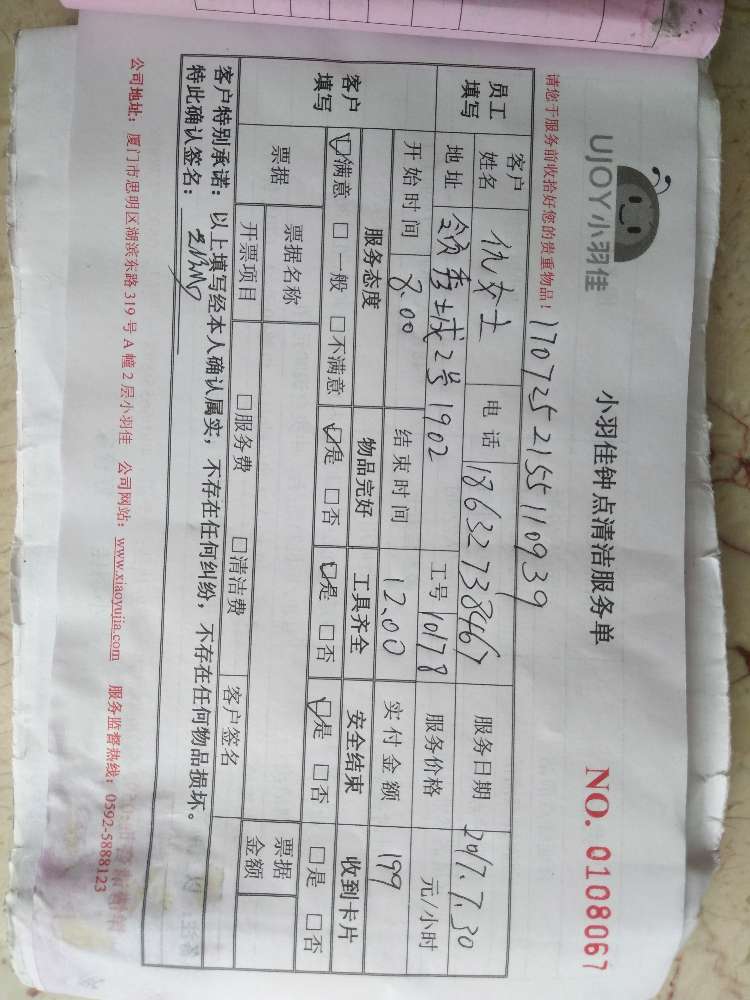 UJOY小羽佳
小羽佳钟点清洁服务单
NO. 0108067
请您于服务前收拾好您的贵重物品！ 1707252155110939
员工填写
客户姓名 仇女士 电话 18632738467 服务日期 2017.7.30
地址 领秀城2号1902 工号 10178 服务价格 元/小时
开始时间 8.00 结束时间 12.00 实付金额 199
客户填写
服务态度 物品完好 工具齐全 安全结束 收到卡片
☑满意 □一般 □不满意 ☑是 □否 ☑是 □否 ☑是 □否 □是 □否
票据 票据名称 □服务费 □清洁费 客户签名 票据金额
开票项目
客户特别承诺：以上填写经本人确认属实，不存在任何纠纷，不存在任何物品损坏。
特此确认签名：
公司地址：厦门市思明区湖滨东路 319 号 A 幢 2 层小羽佳 公司网站：www.xiaoyujia.com 服务监督热线：0592-5888123